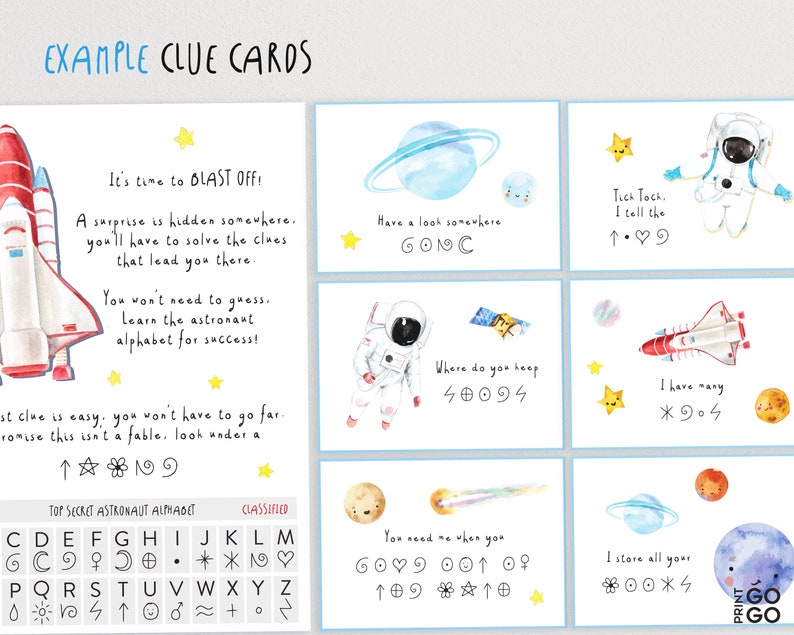 EXAMPLE CLUE CARDS
It's time to BLAST OFF!
A surprise is hidden somewhere,
you'll have to solve the clues
that lead you there.
You won't need to guess,
Learn the astronaut
alphabet for success!
st clue is easy, you won't have to go far.
romise this isn't a fable, look under a
TOP SECRET ASTRONAUT ALPHABET CLASSIFIED
C D E F G H I J K L M
P Q R S T U V W X Y Z
Have a look somewhere
Tick Tock,
I tell the
Where do you keep
I have many
You need me when you
I store all your
PRINT
GO
GO